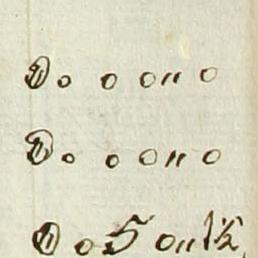 D o o o " o
D o o o " o
D o 5 o " 1½